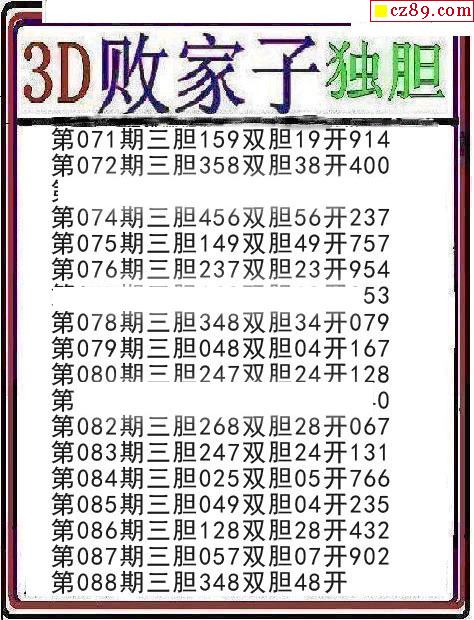 cz89.com
3D败家子独胆
第071期三胆159双胆19开914
第072期三胆358双胆38开400
第074期三胆456双胆56开237
第075期三胆149双胆49开757
第076期三胆237双胆23开954
53
第078期三胆348双胆34开079
第079期三胆048双胆04开167
第080期三胆247双胆24开128
第 0
第082期三胆268双胆28开067
第083期三胆247双胆24开131
第084期三胆025双胆05开766
第085期三胆049双胆04开235
第086期三胆128双胆28开432
第087期三胆057双胆07开902
第088期三胆348双胆48开